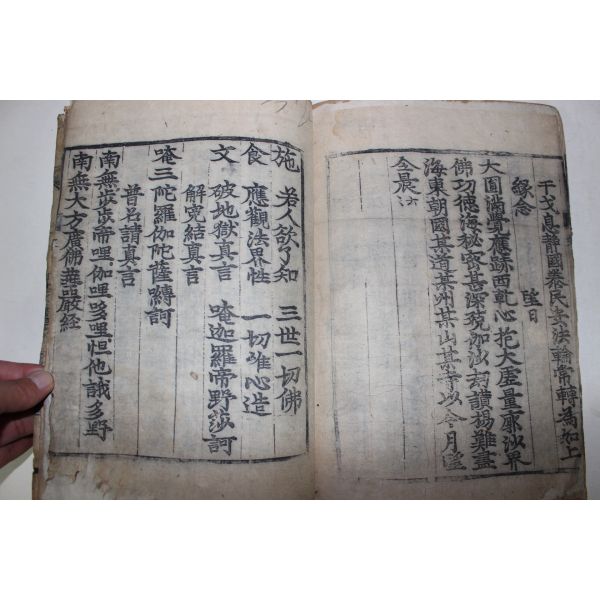 干戈息靜國泰民安法輪常轉為如上
緣念
望日
大圓滿覺應跡西乹心抱大虛量廓沙界
佛功德海秘密甚深殑伽沙刧讃揚難盡
海東朝國某道某州某山某寺以今月望
今晨汝
施 若人欲了知 三世一切佛
食 應觀法界性 一切唯心造
文 破地獄真言 唵迦羅帝野沙訶
解寃結真言
唵三陀羅伽陀薩縛訶
普召請真言
南無步步帝哩伽哩多哩怛他誐多野
南無大方廣佛華嚴経